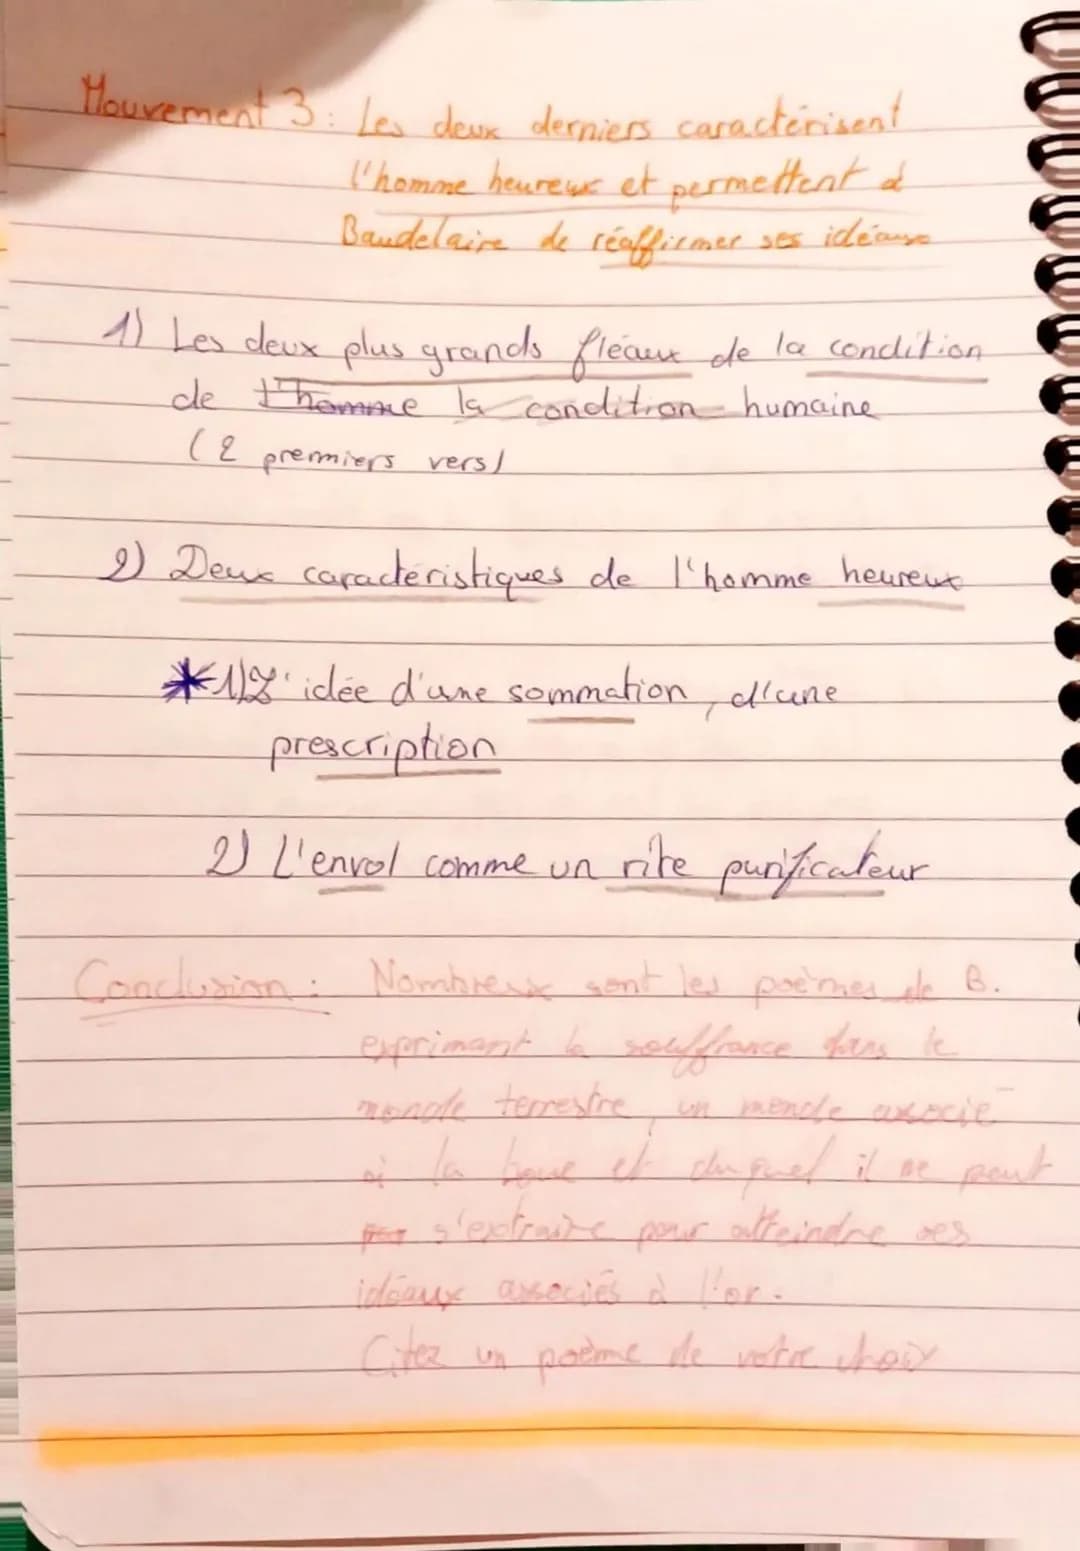 Mouvement 3 : Les deux derniers caractérisent
l'homme heureux et permettent à
Baudelaire de réaffirmer ses idéaux
1) Les deux plus grands fléaux de la condition
de l'homme la condition humaine
(2 premmiers vers)
2) Deux caractéristiques de l'homme heureux
*1) L'idée d'une sommation, d'une
prescription
2) L'envol comme un rite purificateur
Conclusion : Nombreux sont les poèmes de B.
exprimant la souffrance dans le
monde terrestre, un monde associé
à la boue et duquel il ne peut
s'extraire pour atteindre ses
idéaux associés à l'or.
Citez un poème de votre choix